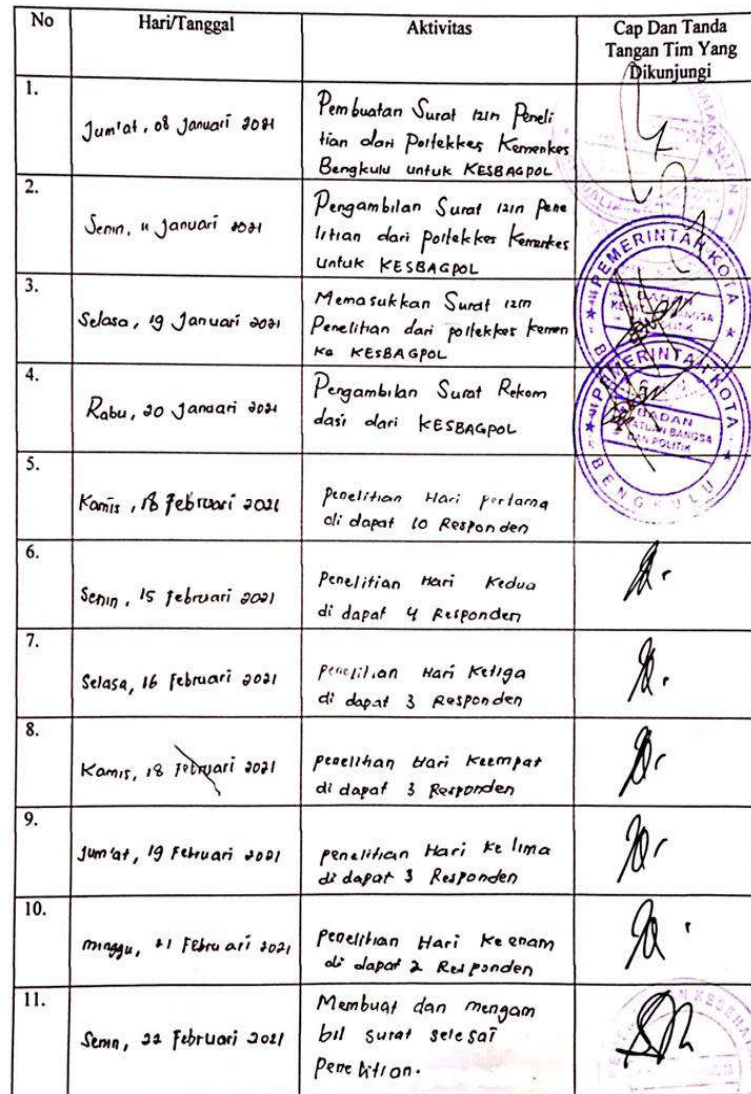 No Hari/Tanggal Aktivitas Cap Dan Tanda
Tangan Tim Yang
Dikunjungi
1.
Jum'at, 08 Januari 2021
Pembuatan Surat izin Peneli
tian dari Poltekkes Kemenkes
Bengkulu untuk KESBAGPOL
2.
Senin, 11 Januari 2021
Pengambilan Surat izin Pene
litian dari poltekkes Kemenkes
untuk KESBAGPOL
3.
Selasa, 19 Januari 2021
Memasukkan Surat izin
Penelitian dari poltekkes kemen
ke KESBAGPOL
4.
Rabu, 20 Januari 2021
Pengambilan Surat Rekom
dasi dari KESBAGPOL
5.
Kamis, Februari 2021
Penelitian Hari pertama
di dapat 10 Responden
6.
Senin, 15 Februari 2021
Penelitian Hari Kedua
di dapat 4 Responden
7.
Selasa, 16 Februari 2021
penelitian Hari Ketiga
di dapat 3 Responden
8.
Kamis, 18 Februari 2021
penelitian Hari Keempat
di dapat 3 Responden
9.
Jum'at, 19 Februari 2021
penelitian Hari Ke lima
di dapat 3 Responden
10.
minggu, 21 Februari 2021
penelitian Hari Ke enam
di dapat 2 Responden
11.
Senin, 22 Februari 2021
Membuat dan mengam
bil surat selesai
penelitian.
PEMERINTAH KOTA
BENGKULU
BADAN
KESATUAN BANGSA
DAN POLITIK